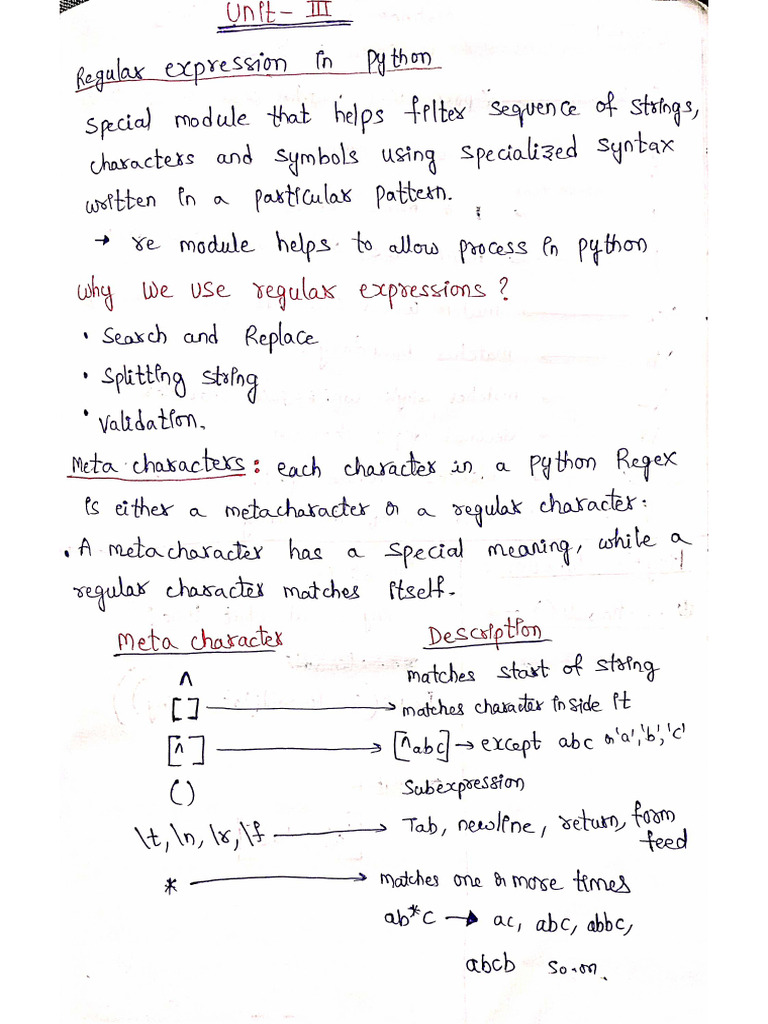 Unit - III
Regular expression in Python
special module that helps filter sequence of strings,
characters and symbols using specialized syntax
written in a particular pattern.
→ re module helps to allow process in python
why we use regular expressions?
• Search and Replace
• Splitting string
• Validation.
Meta characters: each character in a Python Regex
is either a metacharacter or a regular character:
• A metacharacter has a special meaning, while a
regular character matches itself.
Meta character Description
^ matches start of string
[ ] → matches character inside it
[^] → [^abc] → except abc or 'a', 'b', 'c'
( ) Subexpression
\t, \n, \r, \f → Tab, newline, return, form
feed
* → matches one or more times
ab*c → ac, abc, abbc,
abcb so-on.